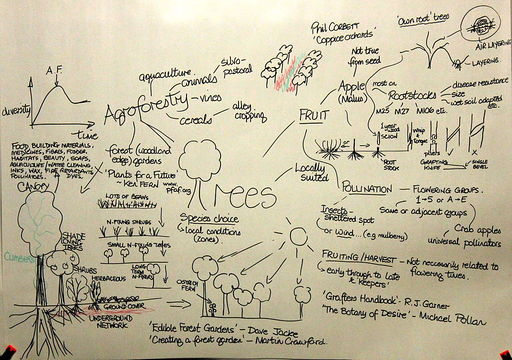 Phil Corbett
'Coppice orchards'
'Own root' trees
AIR LAYERING
LAYERING
Not true
from seed
Apple
(Malus)
Rootstocks
M25 M27 M106 etc.
disease resistance
size
wet soil adapted
etc.
FRUIT
ROOT
STOCK
GRAFTING
KNIFE
SINGLE
BEVEL
Locally
Suited
A.F
diversity
time
Agroforestry
aquaculture
animals
silvo-
pastoral
vines
cereals
alley
cropping
forest (woodland
edge) gardens
'Plants for a Future'
~ KEN FERN
www.
pfaf.org
FOOD, BUILDING MATERIALS,
MEDICINES, FIBRES, FODDER,
HABITATS, BEAUTY, SOAPS,
INKS, WAX, FIRE RETARDANTS
DYES
CANOPY
CLIMBERS
SHADE
LOVING
TREES
SHRUBS
HERBACEOUS
GROUND COVER
UNDERGROUND
NETWORK
LOTS OF BEANS
N-FIXING SHRUBS
SMALL N-FIXING TREES
LONG
TERM N-
FIXERS
Trees
Species choice
local conditions
(zones)
OSTRICH
FERN
POLLINATION — FLOWERING GROUPS.
1→5 or A→E
Same or adjacent groups
Insects -
Sheltered spot
or Wind... (e.g mulberry)
Crab apples
universal pollinators
FRUITING/HARVEST - Not necessarily related to
flowering times.
early through to late
& keepers'
'Grafters Handbook' - R.J. Garner
'The Botany of Desire' ~ Michael Pollan
'Edible Forest Gardens' - Dave Jacke
'Creating a forest garden' - Martin Crawford